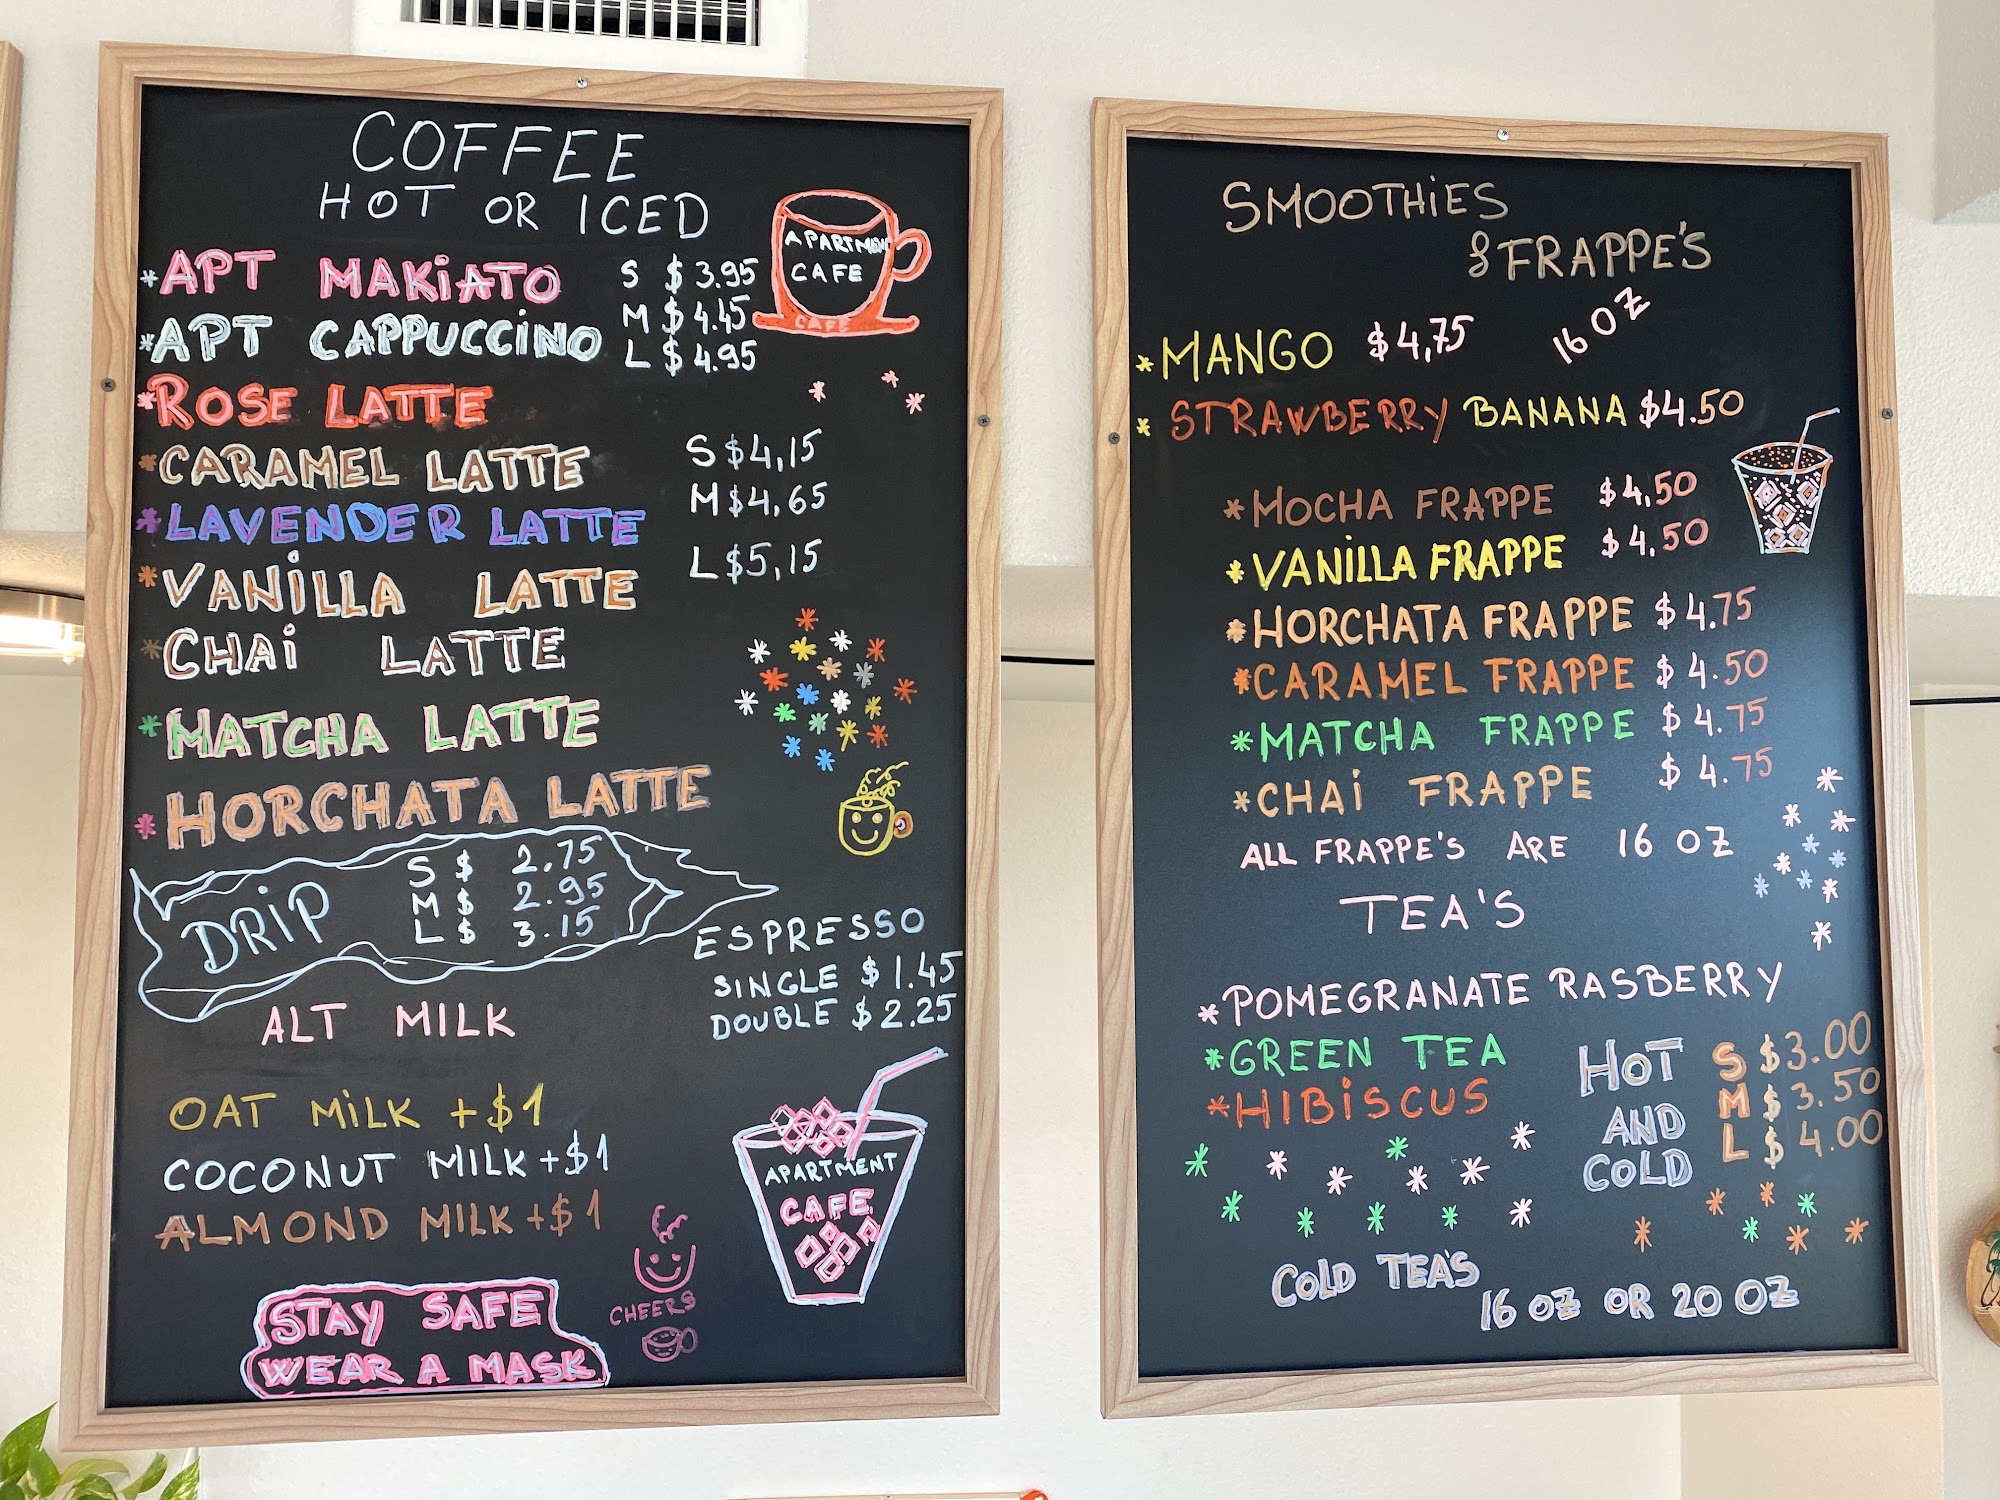 COFFEE
HOT OR ICED
*APT MAKiATO
S $3.95
*APT CAPPUCCiNO
M $4.45
L $4.95
APARTMENT
CAFE
CAFE
*ROSE LATTE
*CARAMEL LATTE
*LAVENDER LATTE
*VANiLLA LATTE
*CHAi LATTE
*MATCHA LATTE
*HORCHATA LATTE
S $4,15
M $4,65
L $5,15
DRiP
S $ 2.75
M $ 2.95
L $ 3.15
ESPRESSO
SINGLE $1.45
DOUBLE $2.25
ALT MILK
OAT MiLK +$1
COCONUT MILK +$1
ALMOND MILK +$1
APARTMENT
CAFE
CHEERS
STAY SAFE
WEAR A MASK
SMOOTHiES
& FRAPPE'S
*MANGO $4,75 16 OZ
*STRAWBERRY BANANA $4.50
*MOCHA FRAPPE $4,50
*VANiLLA FRAPPE $4,50
*HORCHATA FRAPPE $4.75
*CARAMEL FRAPPE $4.50
*MATCHA FRAPPE $4.75
*CHAi FRAPPE $4.75
ALL FRAPPE'S ARE 16 OZ
TEA'S
*POMEGRANATE RASBERRY
*GREEN TEA
*HIBiSCUS
HOT
AND
COLD
S $3.00
M $3.50
L $4.00
COLD TEA'S
16 OZ OR 20 OZ